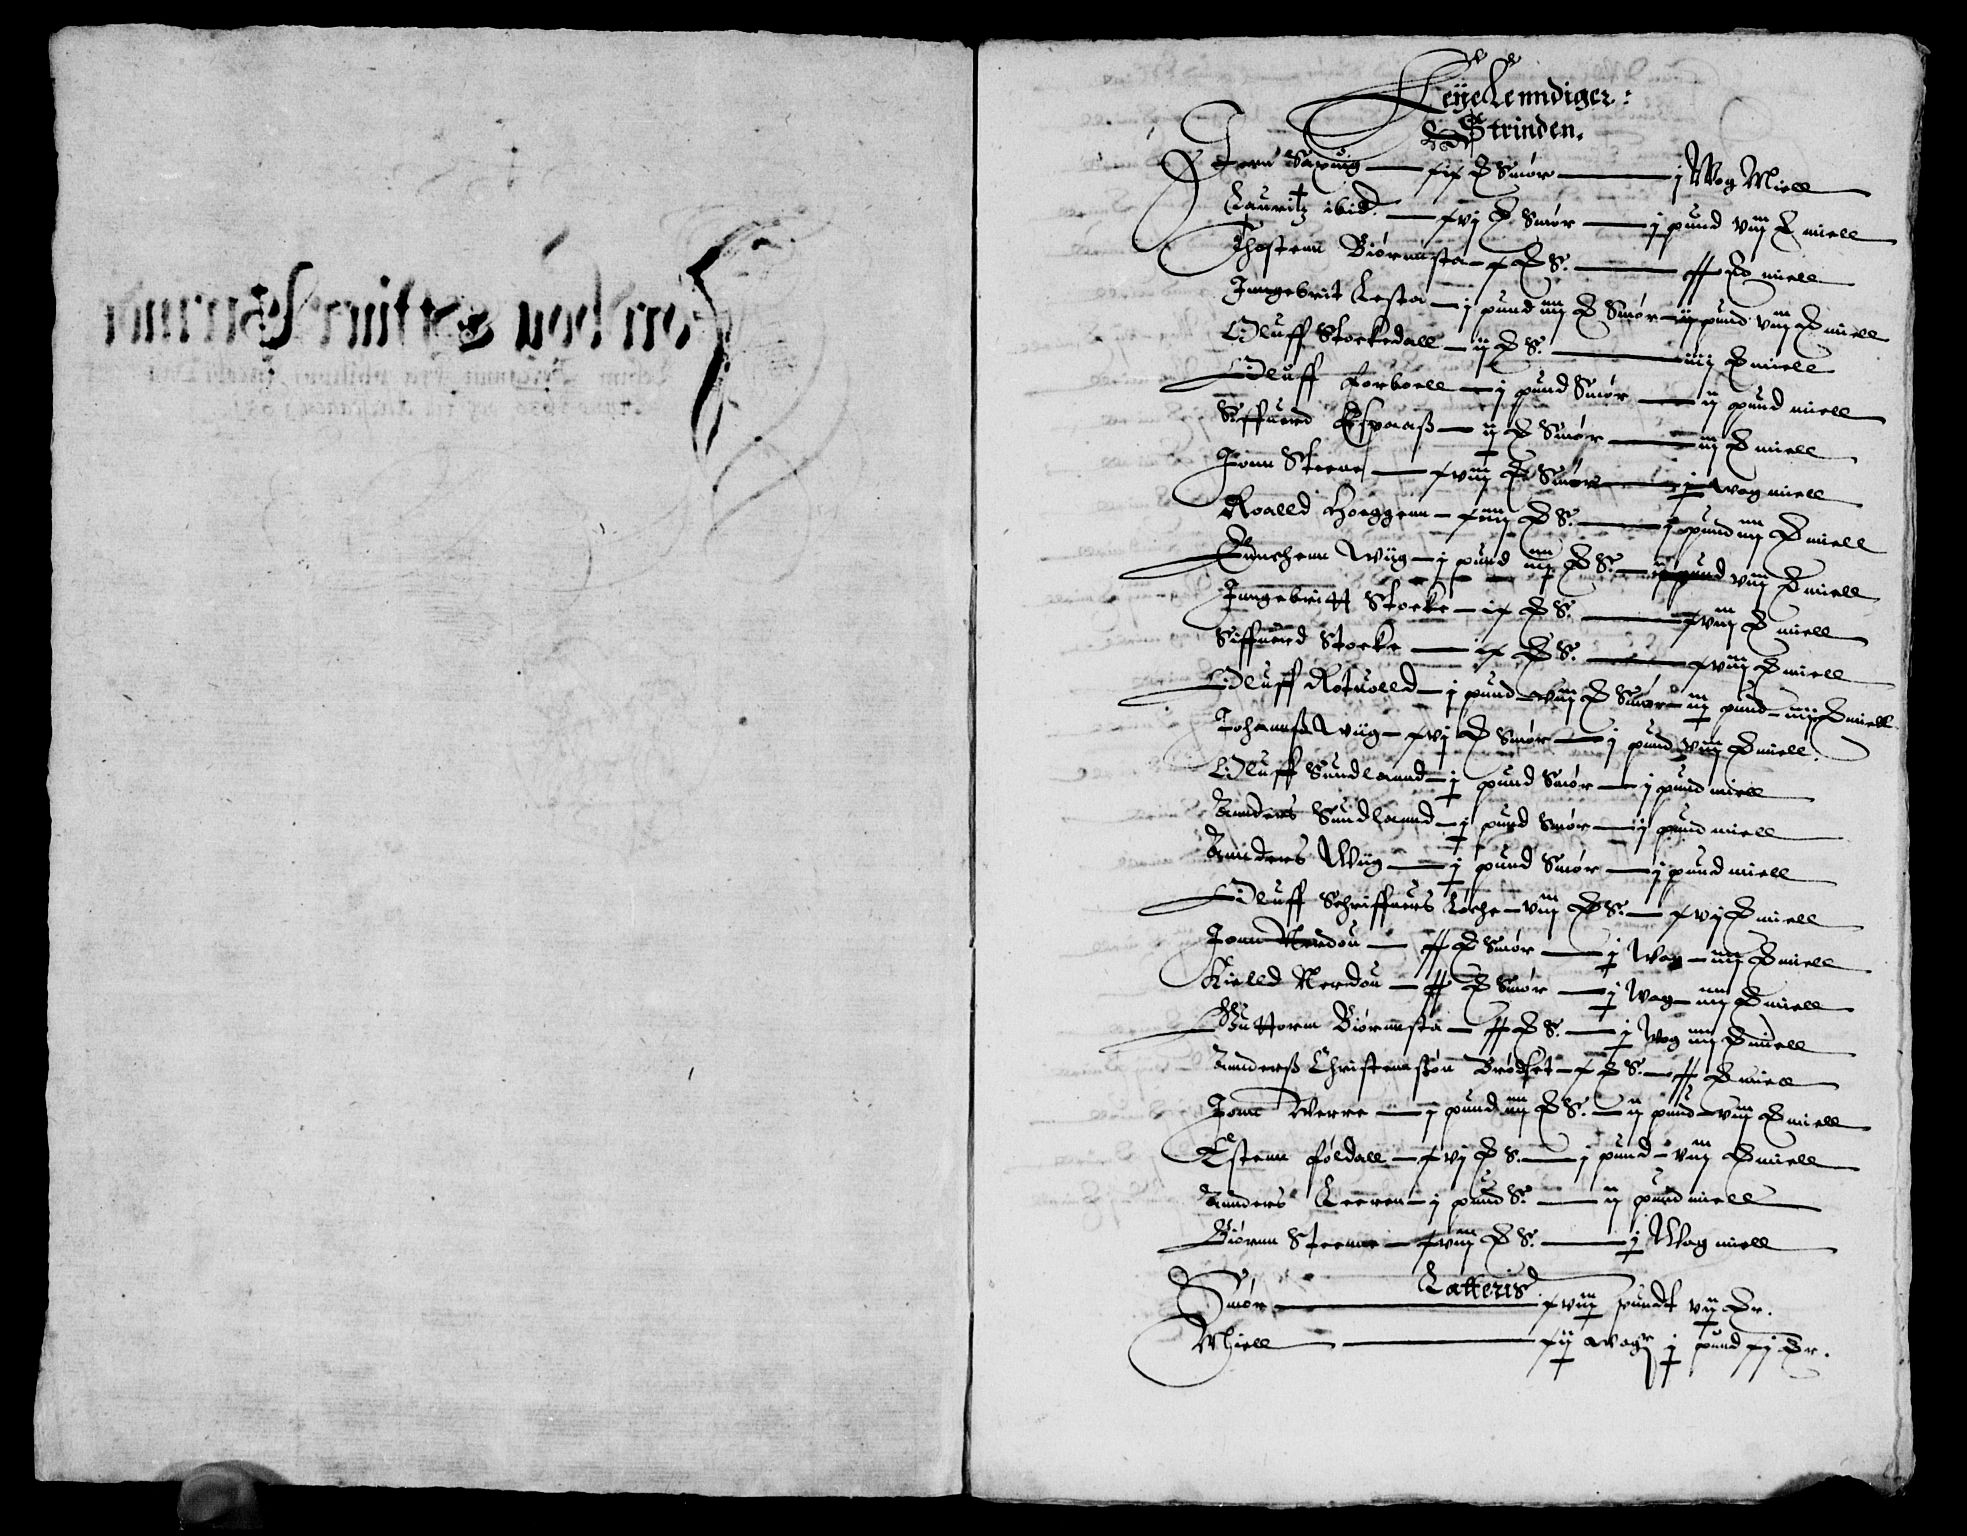 Leÿe Lenndiger:
Strinden.
Jern Saxuig — xix ℔ Smør — j Wog Miell
Lauritz ibid. — xvj ℔ Smør — j pund viij ℔ miell
Thostenn Biørnnsta — x ℔ S. — xx ℔ miell
Jngebrit Lesta — j pund iiij ℔ Smør — ij pund viij ℔ miell
Oluff Stockedall — ij ℔ S. — iiij ℔ miell
Oluff forboell — j pund Smør — ij pund miell
Siffuerd Espaaß — ij ℔ Smør — iij ℔ miell
Jonn Steene — xviij ℔ Smør — j wog miell
Roalld Hoeggenn — xiiij ℔ S. — j pund iiij ℔ miell
Wiig — j pund iiij ℔ S. — ij pund viij ℔ miell
Jngebritt Stocke — ix ℔ S. — xviij ℔ miell
Siffuerd Stocke — ix ℔ S. — xviij ℔ miell
Oluff Rotuolld — j pund xviij ℔ Smør — iij pund iiij ℔ miell
Johannß Wiig — xvj ℔ Smør — j pund viij ℔ miell
Oluff Sundlannd — j pund Smør — j pund miell
Annders Sundlannd — j pund Smør — ij pund miell
Annders Wiig — j pund Smør — j pund miell
Oluff Schriffuers løche — viij ℔ S. — xvj ℔ miell
Jonn Nerdou — xx ℔ Smør — j Wog iiij ℔ miell
Kielld Nerdou — xx ℔ Smør — j Wog iiij ℔ miell
Guttorm Biørnnsta — xx ℔ S. — j Wog iiij ℔ miell
Annderß Christennßøn Brødset — x ℔ S. — xx ℔ miell
Jonn Werre — j pund iiij ℔ S. — ij pund viij ℔ miell
Estenn føldall — xvj ℔ S. — j pund viij ℔ miell
Annders Leeren — j pund S. — ij pund miell
Biørnn Steenne — xviij ℔ S. — j Wog miell
Latteris
Smør — xviij pundt vij ℔r.
Mhiell — xij wogr j pund xj ℔r.